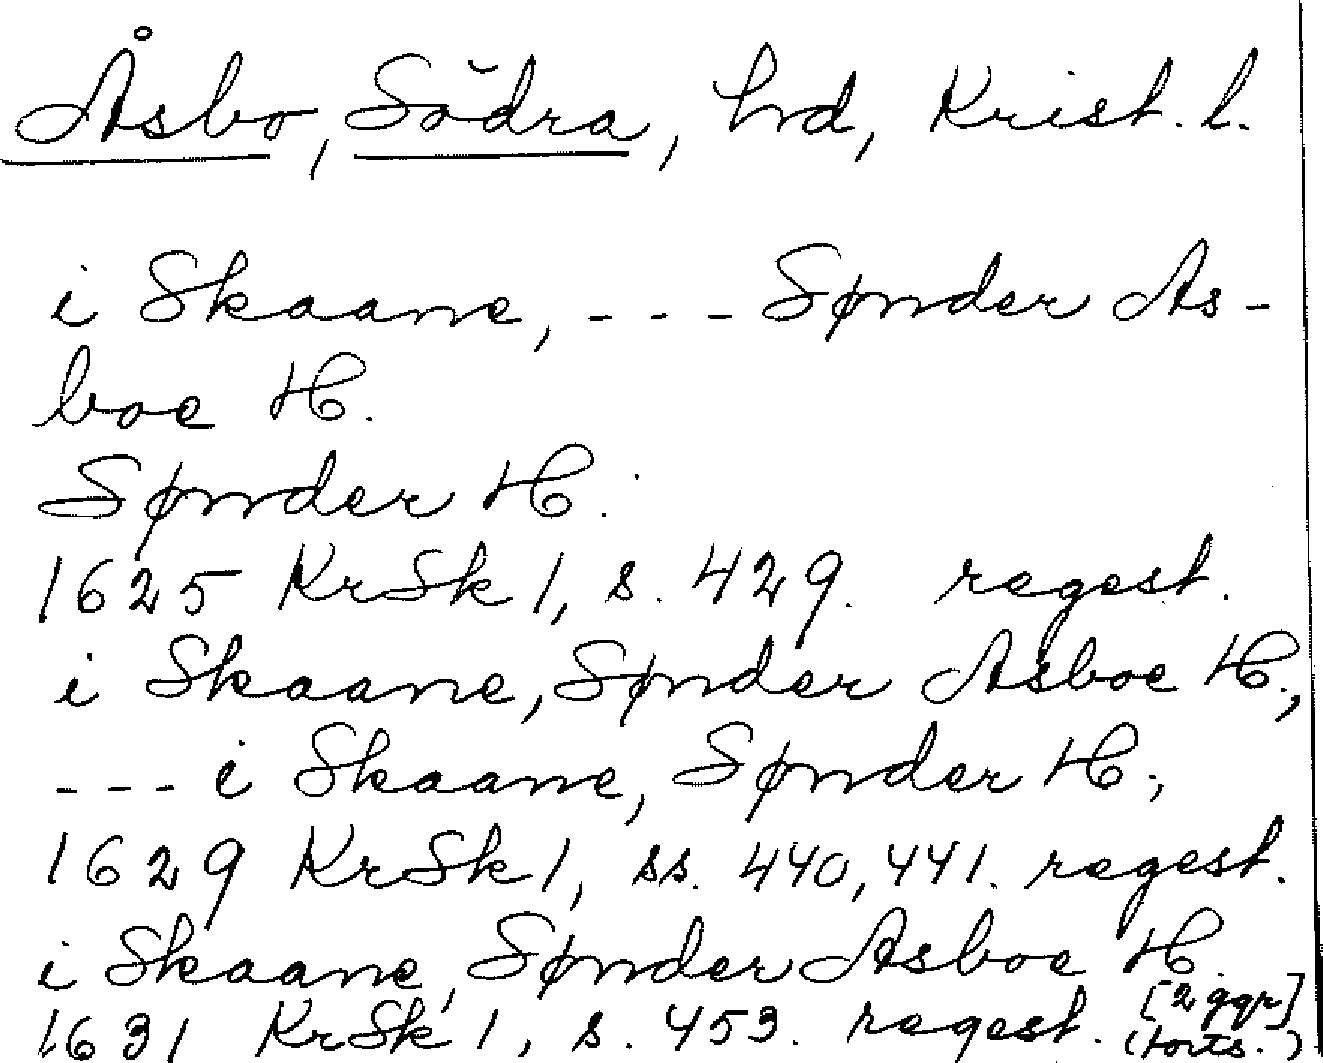 Åsbo, Södra, hrd, Krist. l.
i Skaane, - - - Sønder As-
boe H.
Sønder H.
1625 KrSk 1, s. 429. regest.
i Skaane, Sønder Asboe H.,
- - - i Skaane, Sønder H.,
1629 KrSk 1, ss. 440, 441. regest.
i Skaane, Sønder Asboe H.
[2 ggr]
1631 KrSk 1, s. 453. regest. (forts.)